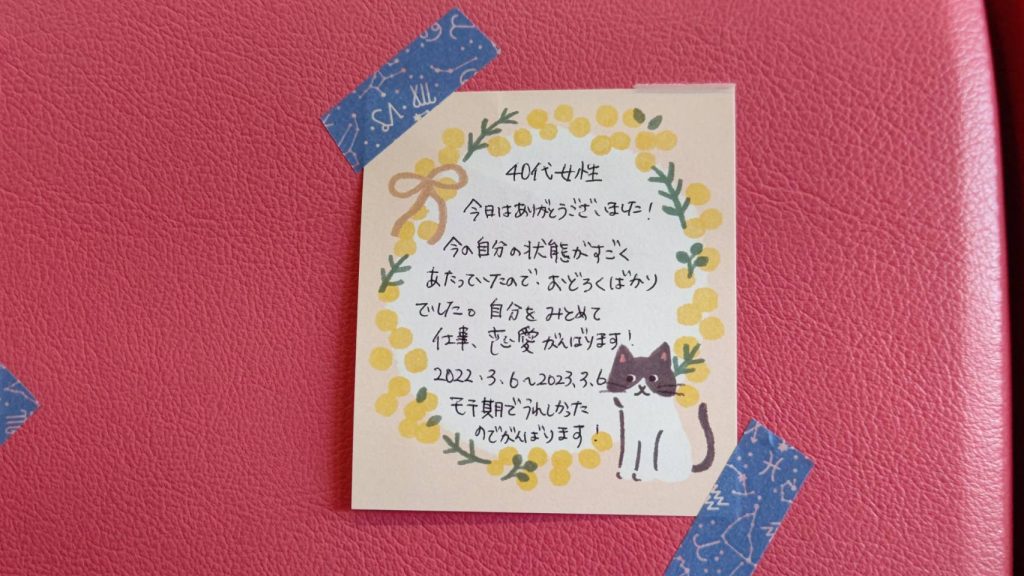 40代女性
今日はありがとうございました!
今の自分の状態がすごく
あたっていたので、おどろくばかり
でした。自分をみとめて
仕事、恋愛がんばります!
2022.3.6~2023.3.6
モテ期でうれしかった
のでがんばります!